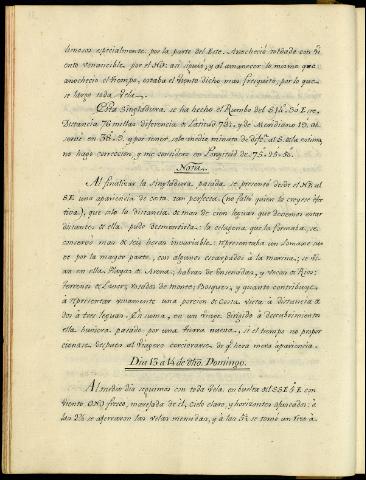 dimosos especialmente por la parte del Este. Anocheció toldado con vi
ento venancible por el NO: asi siguió, y al amanecer lo mismo que
anocheció el tiempo, estaba el viento dicho mas fresquito, por lo que
se largo toda vela.
Esta Singladura, se ha hecho el Rumbo del S 14° 30' Este
Distancia 76 millas diferencia de Latitud 73½, y de Meridiano 19, ob
servé en 38°.9', y por tener solo medio minuto de difª. al S. de la estima
no hago correccion, y me considero en Longitud de 75°.25'.30".
Nota.
Al finalizar la singladura pasada se presentó desde el NE al
SE una apariencia de costa tan perfecta (no falto quien la creyese efec
tiva), que solo la distancia de mas de cien leguas que deviamos estar
distantes de ella pudo desmentirla: la celageria que la formaba, se
conservó mas de seis horas invariable: representaba un lomage sua
ve por la mayor parte, con algunos escarpados à la marina; se di
an en ella Playas de Arena; habras de Ensenadas, y vocas de Rios:
terrenos de Labor, vestidos de monte; Bosques, y quanto contribuye
à representar vivamente una porcion de Costa vista à distancia a
dos à tres leguas. En suma, en un viage dirigido à descubrimientos
ella huviera pasado por una tierra nueva, si el tiempo no propor
cionase despues al Viagero cerciorarse de qe. hera mera apariencia.
Dia 13 a 14 de dho. Domingo.
Al medio dia seguimos con toda vela en buelta del SSE ¼ E con
viento ONO fresco, marejada de él, cielo claro, y horizontes afuscados: à
las 2½ se aferraron las velas menudas, y à las 3½ se tomó un rizo à